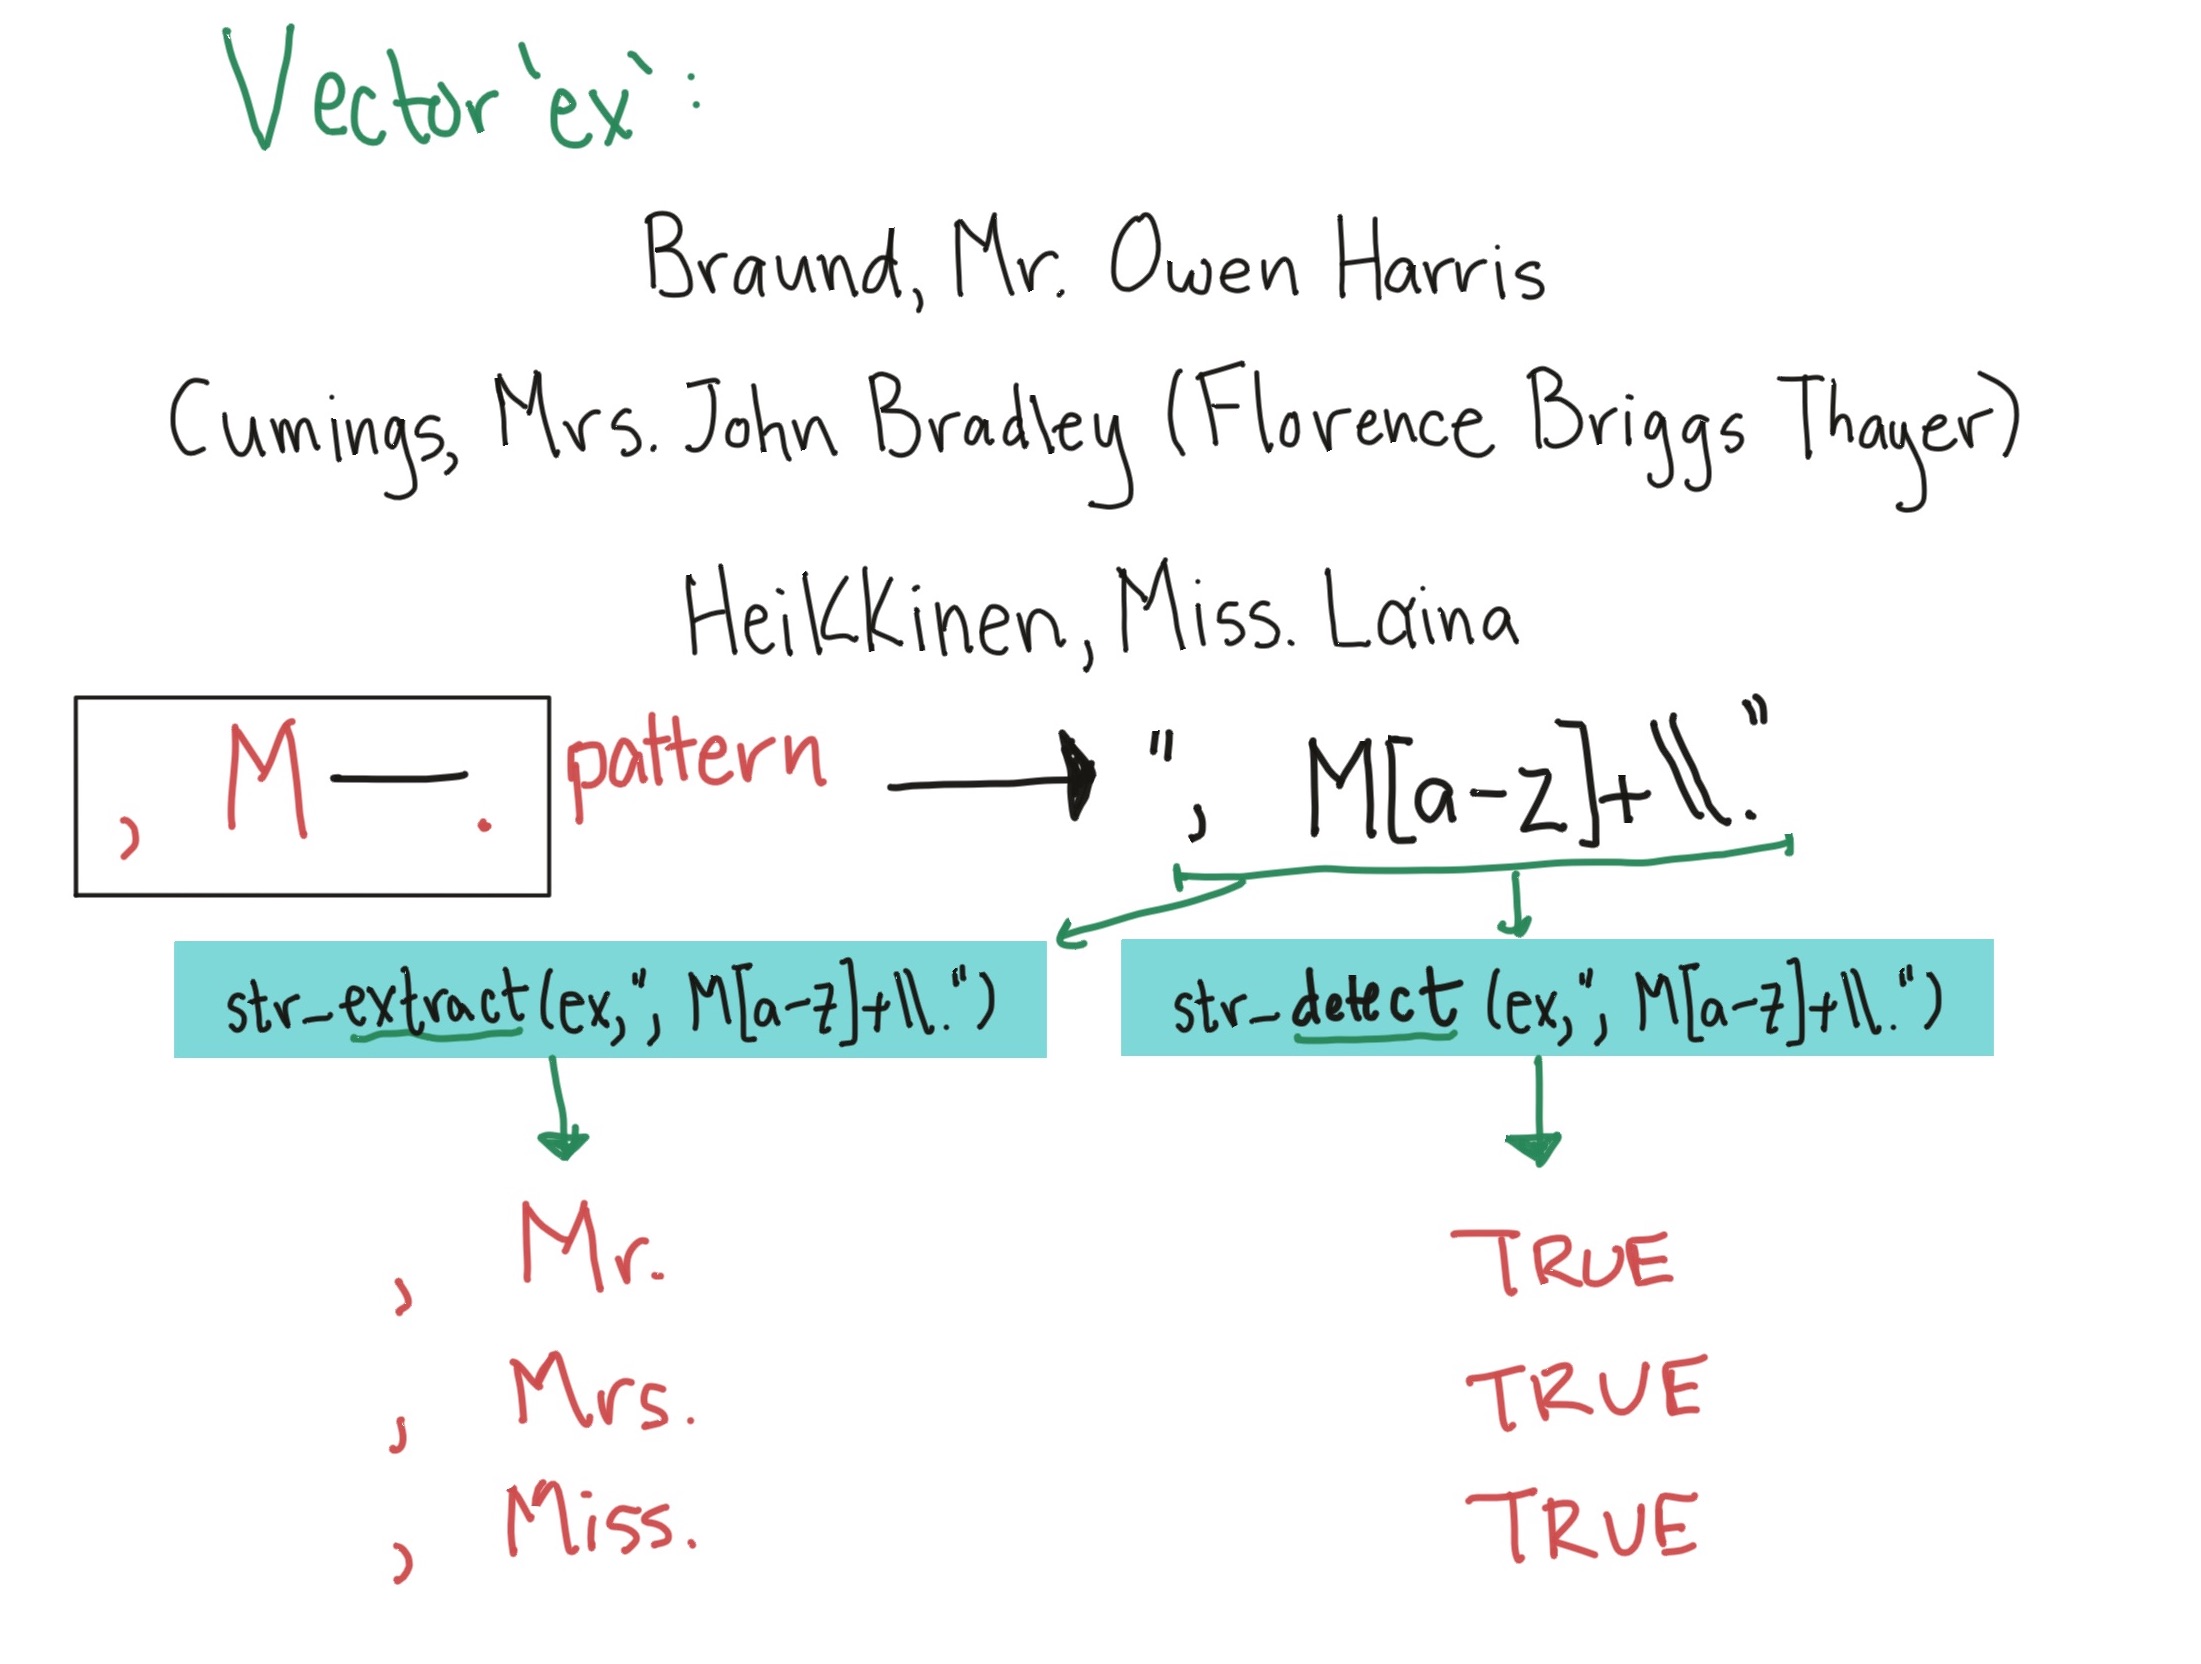 Vector `ex`:
Braund, Mr. Owen Harris
Cumings, Mrs. John Bradley (Florence Briggs Thayer)
Heikkinen, Miss. Laina
, M—. pattern → ", M[a-z]+\\."
str_extract(ex,", M[a-z]+\\.") str_detect(ex,", M[a-z]+\\.")
, Mr. TRUE
, Mrs. TRUE
, Miss. TRUE